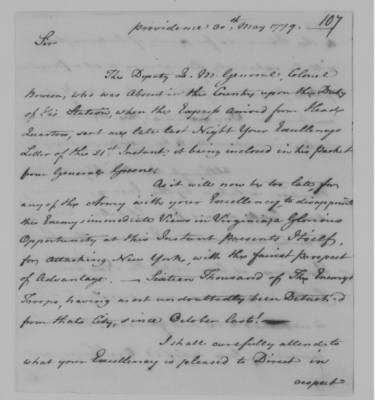 107
Providence 30th May 1779.
Sir
The Deputy Q. M. General, Colonel
Bowen, who was absent in the Country upon the Duty
of His Station, when the Express arrived from Head
Quarters, sent me late last Night Your Excellency's
Letter of the 21st Instant; it being inclosed in his Packet
from General Greene.
As it will now be too late for
any of the Army with your Excellency, to disappoint
the Enemys immediate Views in Virginia; a Glorious
Opportunity at this Instant presents Itself,
for attacking New York, with the fairest Prospect
of Advantage. — Sixteen Thousand of The Enemys
Troops, having most undoubtedly been Detach'd
from that City, since October last! —
I shall carefully attend to
what your Excellency is pleased to Direct in
respect